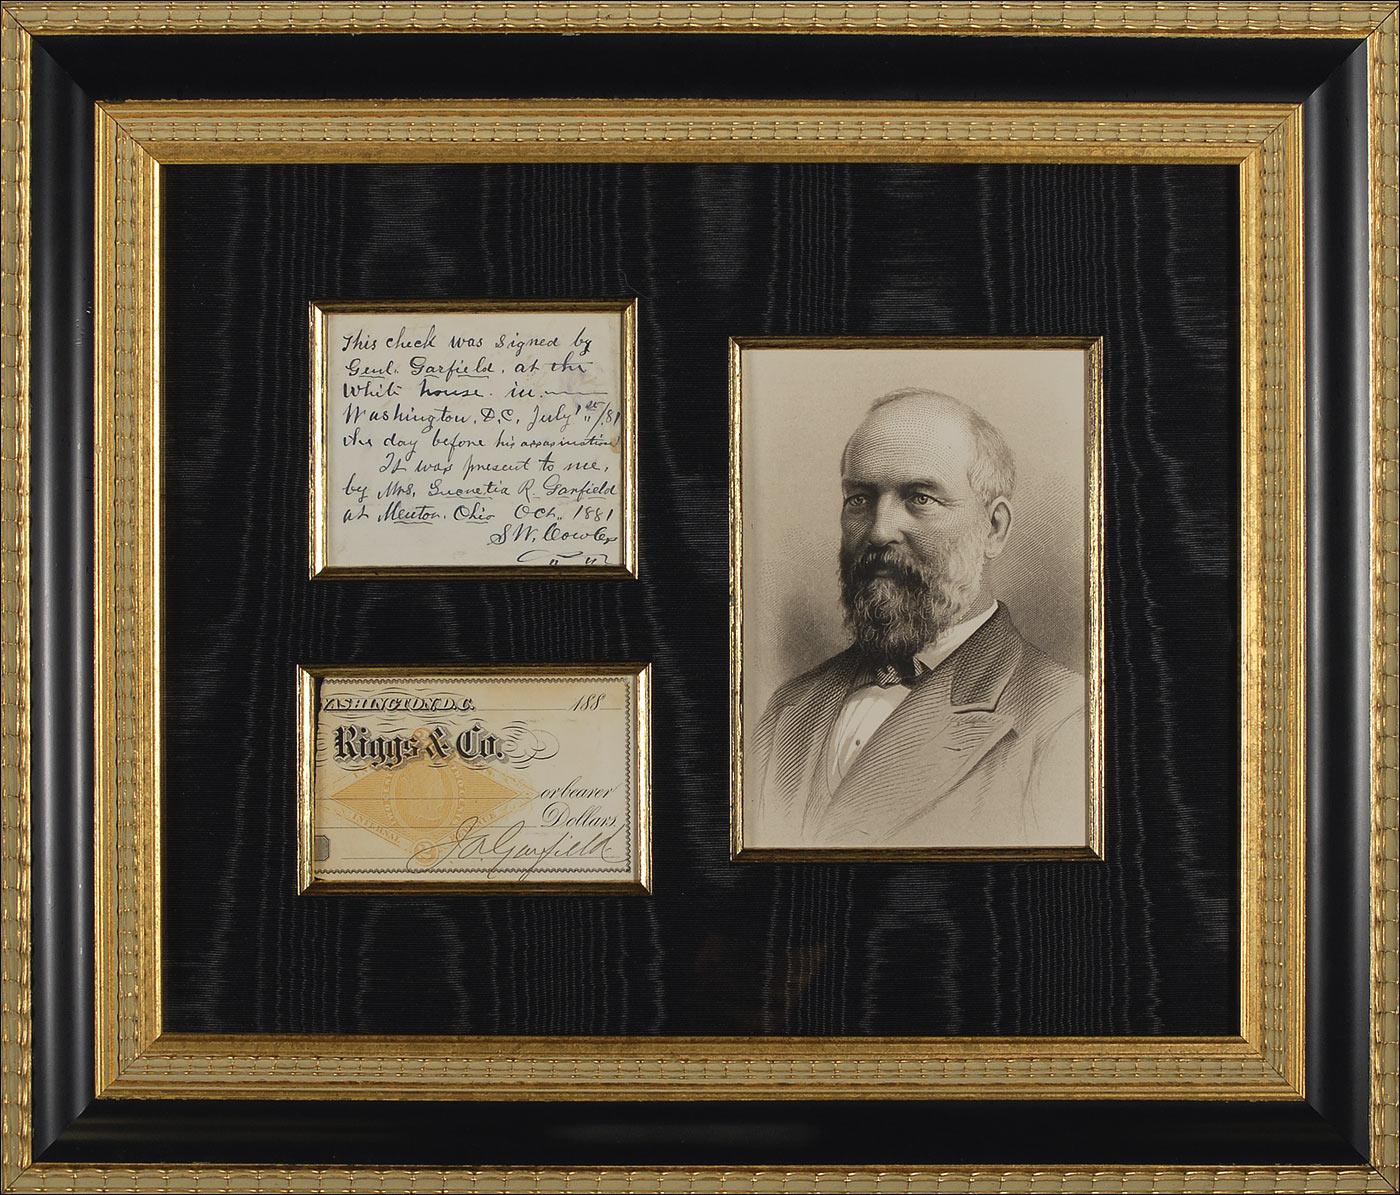 This check was signed by
Genl. Garfield, at the
White house. in
Washington, D.C, July 1st/81
the day before his assasination
It was present to me,
by Mrs, Lucretia R. Garfield
at Mentor, Ohio Oct. 1881
S.W. Cowles
WASHINGTON, D.C. 188
Riggs & Co.
or bearer
Dollars
INTERNAL
J A Garfield